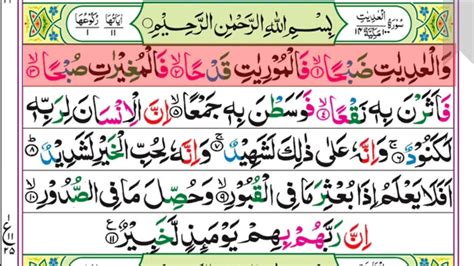 سُوْرَةُ الْعٰدِيٰتِ مَكِّيَّةٌ ١٤
١٠٠
بِسْمِ اللّٰهِ الرَّحْمٰنِ الرَّحِيْمِ
اٰيَاتُهَا ١١
رُكُوْعُهَا ١
وَالْعٰدِيٰتِ ضَبْحًا ۙ﴿١﴾ فَالْمُوْرِيٰتِ قَدْحًا ۙ﴿٢﴾ فَالْمُغِيْرٰتِ صُبْحًا ۙ﴿٣﴾
فَاَثَرْنَ بِهٖ نَقْعًا ۙ﴿٤﴾ فَوَسَطْنَ بِهٖ جَمْعًا ۙ﴿٥﴾ اِنَّ الْاِنْسَانَ لِرَبِّهٖ
لَكَنُوْدٌ ۚ﴿٦﴾ وَاِنَّهٗ عَلٰى ذٰلِكَ لَشَهِيْدٌ ۚ﴿٧﴾ وَاِنَّهٗ لِحُبِّ الْخَيْرِ لَشَدِيْدٌ ؕ﴿٨﴾
اَفَلَا يَعْلَمُ اِذَا بُعْثِرَ مَا فِى الْقُبُوْرِ ۙ﴿٩﴾ وَحُصِّلَ مَا فِى الصُّدُوْرِ ۙ﴿١٠﴾
اِنَّ رَبَّهُمْ بِهِمْ يَوْمَئِذٍ لَّخَبِيْرٌ ﴿١١﴾
ع
١
١١
٢٥